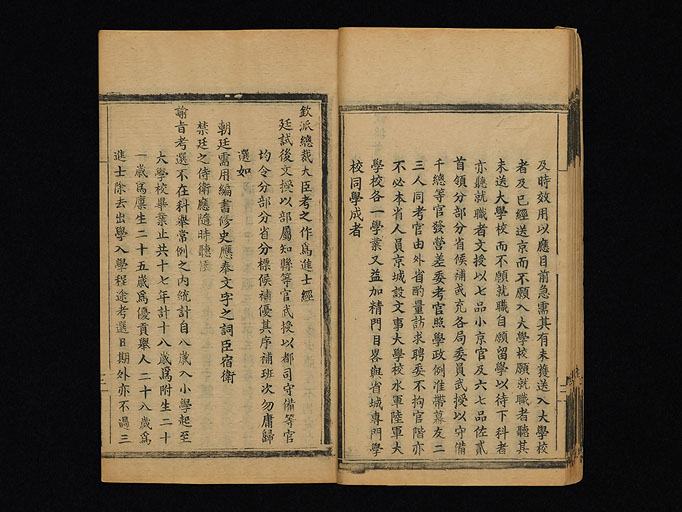 及時效用以應目前急需其有未獲送入大學校
者及已經送京而不願入大學校願就職者聽其
未送大學校而不願就職自願留學以待下科者
亦聽就職者文授以七品小京官及六七品佐貳
首領分部分省候補或充各局委員武授以守備
千總等官發營差委考官照學政例准帶幕友二
三人同考官由外省酌量訪求聘委不拘官階亦
不必本省人員京城設文事大學校水軍陸軍大
學校各一學業又益加精門目畧與省城專門學
校同學成者
欽派總裁大臣考之作爲進士經
廷試後文授以部屬知縣等官武授以都司守備等官
均令分部分省分標候補優其序補班次勿庸歸
選如
朝廷需用編書修史應奉文字之詞臣宿衛
禁廷之侍衛應隨時聽候
諭旨考選不在科舉常例之內統計自八歲入小學起至
大學校畢業止共十七年計十八歲爲附生二十
一歲爲廩生二十五歲爲優貢舉人二十八歲爲
進士除去出學入學程途考選日期外亦不過三